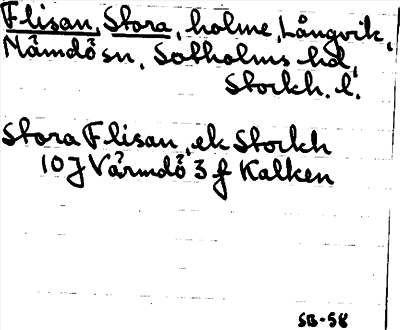 Flisan, Stora, holme, Långvik,
Nämdö sn. Sotholms hd,
Storkh. l.
Stora Flisan, ek Storkh
10 J Värmdö 3 f Kalken
SB-58